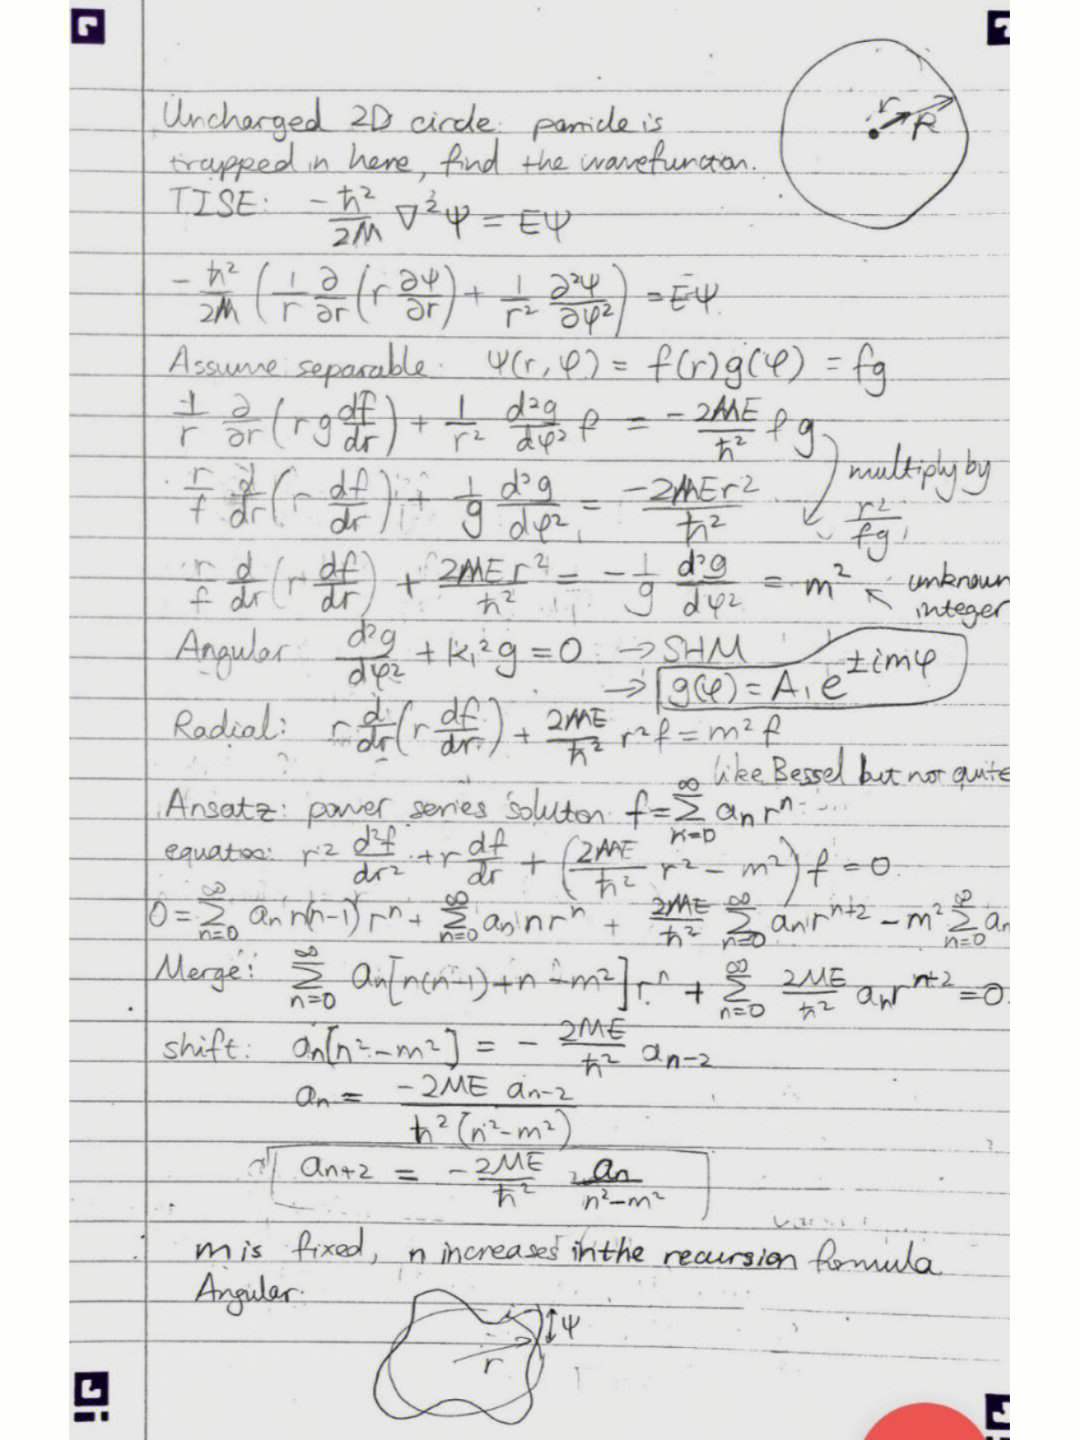 r R
Uncharged 2D circle. particle is
trapped in here, find the wavefunction.
TISE: -ħ²/2M ∇²ψ = Eψ
-ħ²/2M (1/r ∂/∂r (r ∂ψ/∂r) + 1/r² ∂²ψ/∂φ²) = Eψ.
Assume separable: ψ(r, φ) = f(r)g(φ) = fg
1/r ∂/∂r (r g df/dr) + 1/r² d²g/dφ² f = -2ME/ħ² f g
r/f d/dr (r df/dr) + 1/g d²g/dφ² = -2MEr²/ħ² multiply by r²/fg
r/f d/dr (r df/dr) + 2MEr²/ħ² = -1/g d²g/dφ² = m² ↖ unknown integer
Angular d²g/dφ² + k₁²g = 0 → SHM
→ g(φ) = A₁ e^±imφ
Radial: r d/dr (r df/dr) + 2ME/ħ² r²f = m² f
like Bessel but not quite
Ansatz: power series solution f = ∑_{n=0}^∞ aₙ rⁿ
equation: r² d²f/dr² + r df/dr + (2ME/ħ² r² - m²) f = 0
0 = ∑_{n=0}^∞ aₙ n(n-1) rⁿ + ∑_{n=0}^∞ aₙ n rⁿ + 2ME/ħ² ∑_{n=0}^∞ aₙ r^{n+2} - m² ∑_{n=0}^∞ aₙ
Merge: ∑_{n=0}^∞ aₙ[n(n-1)+n-m²] rⁿ + ∑_{n=0}^∞ 2ME/ħ² aₙ r^{n+2} = 0.
shift: aₙ[n²-m²] = - 2ME/ħ² a_{n-2}
aₙ = -2ME a_{n-2} / ħ²(n²-m²)
a_{n+2} = -2ME/ħ² aₙ/n²-m²
m is fixed, n increases in the recursion formula
Angular.
ψ
r